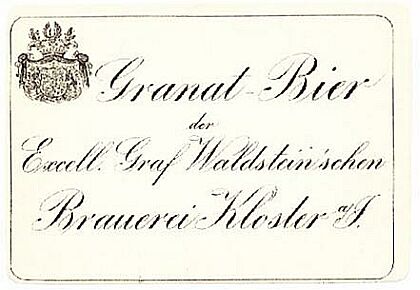 Granat-Bier
der
Excell. Graf Waldstein'schen
Brauerei Kloster a/I.